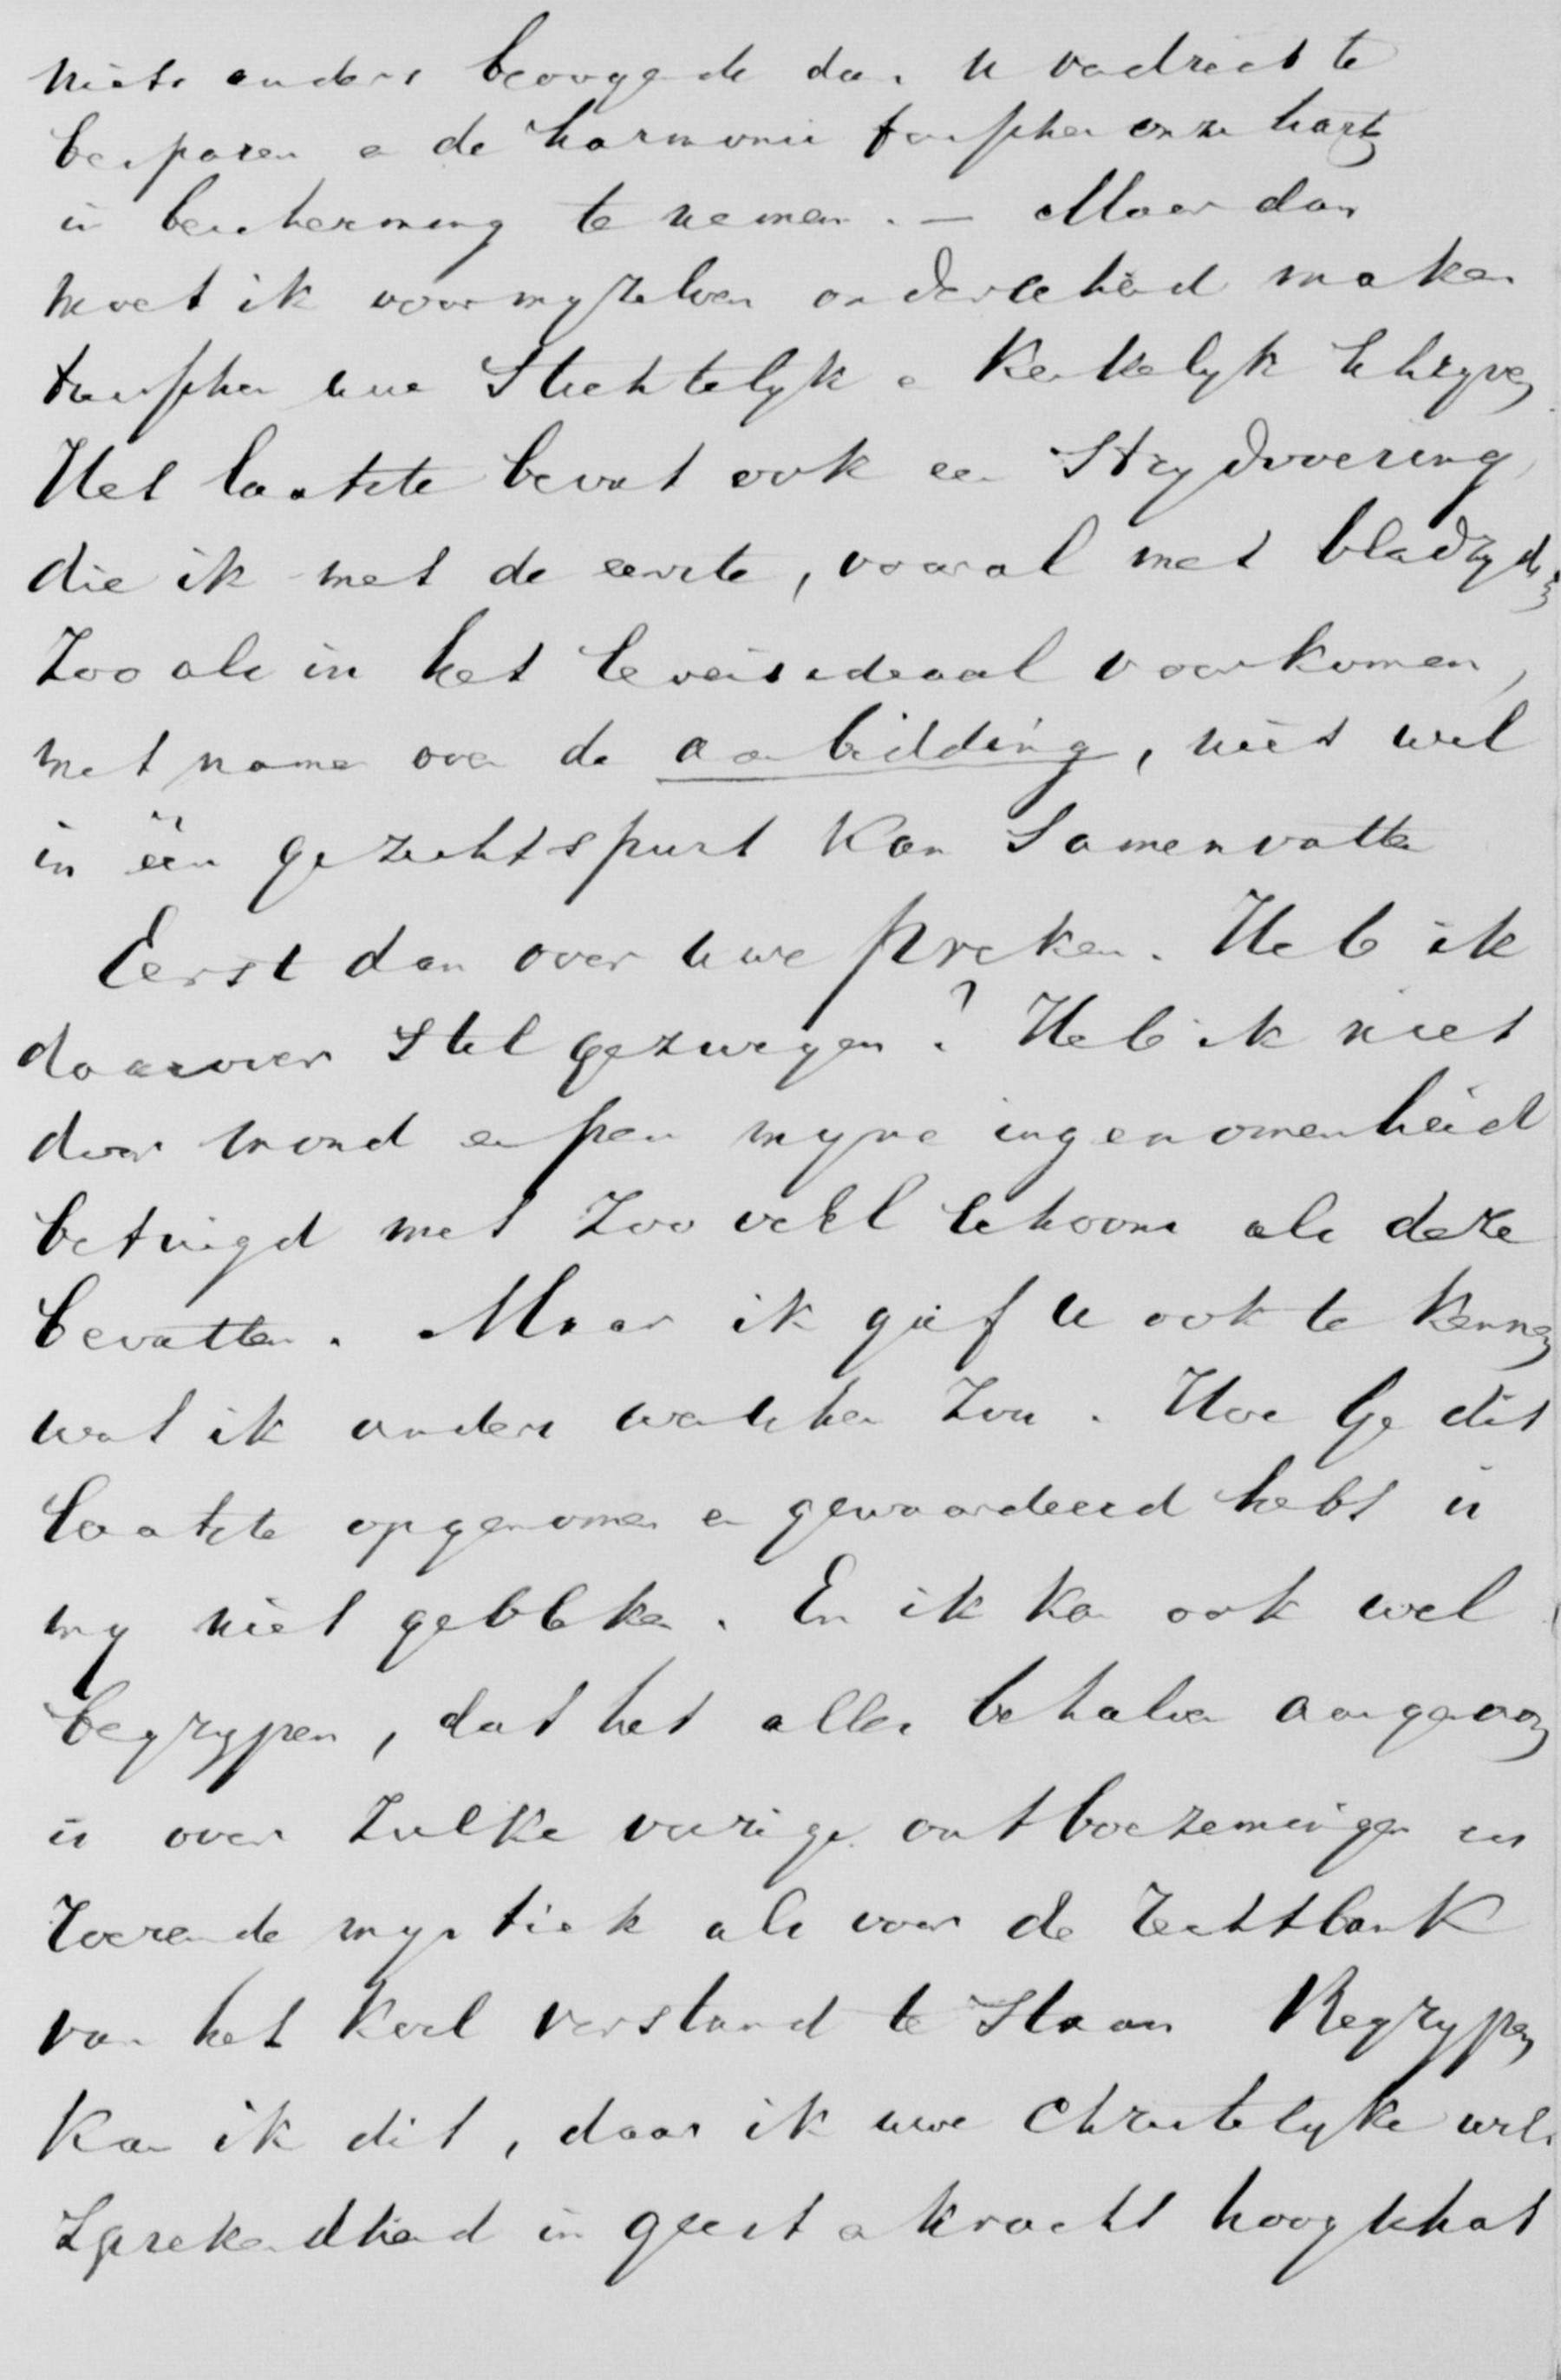 niets anders beoogende dan U verdriet te
besparen en de harmonie tusschen onze harten
in bescherming te nemen. — Maar dan
moet ik voor myzelven onderscheid maken
tusschen uwe Stichtelyk en Kerkelyk schryven
Het laatste bevat ook een Strydvoering,
die ik met de eerste, vooral met bladzyden
Zoo als in het levensideaal voorkomen,
met name over de aanbidding, niet wel
in één gezichtspunt kan Samenvatten
Eerst dan over uwe preken. Heb ik
daarover Stil gezwegen? Heb ik niet
door mond en pen myne ingenomenheid
betuigd met Zoo veel schoons als deze
bevatten. Maar ik gaf U ook te kennen
wat ik anders wenschen Zou. Hoe Ge dit
laatste opgenomen en gewaardeerd hebt is
my niet gebleken. En ik kan ook wel
begrypen, dat het alles behalve aangenaam
is over Zulke vurige ontboezemingen en
Zoerende mystiek als voor de Rechtbank
van het koel verstand te Staan Begrypen
Kan ik dit, daar ik uwe Christelyke wel-
Sprekendheid in geest en kracht hoogschat